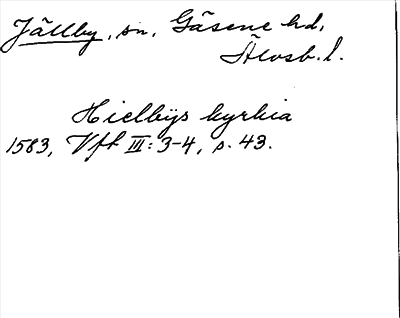 Jällby, sn, Gäsene hd,
Älvsb. l.
Hielbÿs kyrkia
1583, Vft III: 3-4, s. 43.